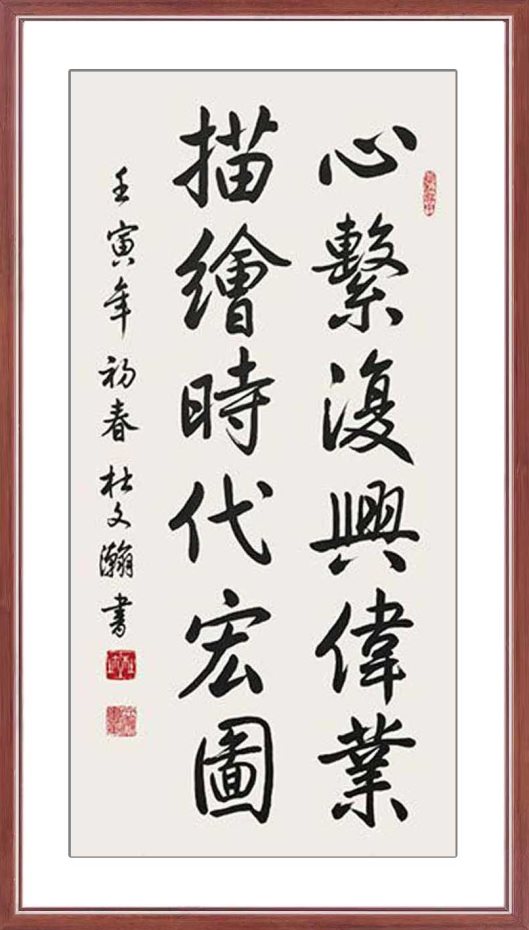 心繫復興偉業
描繪時代宏圖
壬寅年初春杜文瀚書